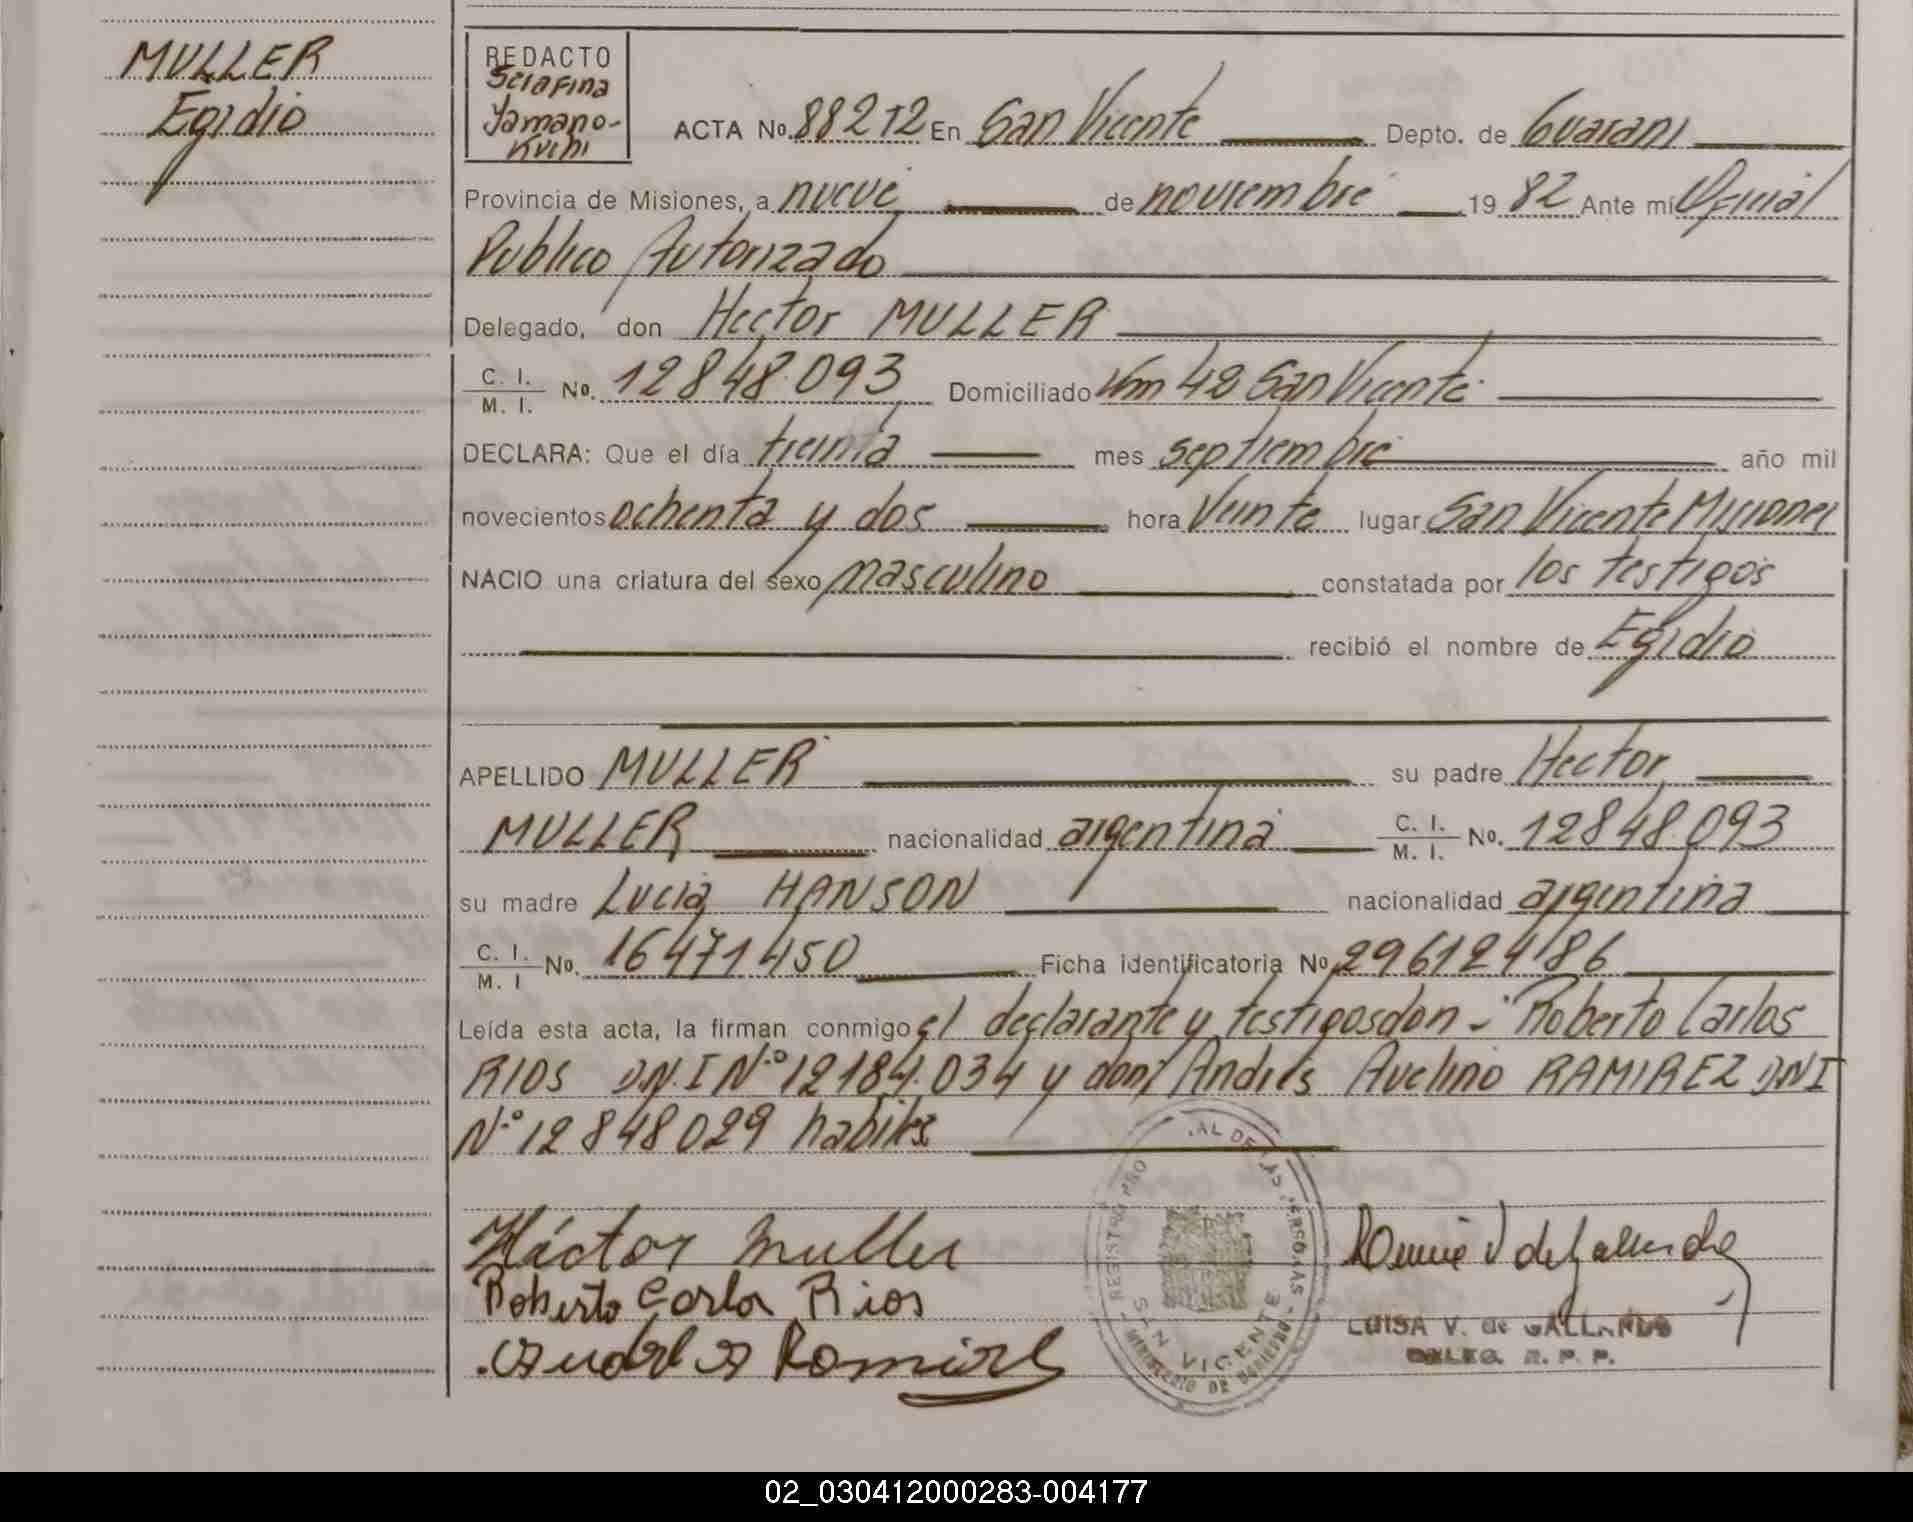 MULLER
Egidio
REDACTO
Serafina
Yamano-
Kuchi
ACTA No. 88212 En San Vicente Depto. de Guarani
Provincia de Misiones, a nueve de noviembre 1982 Ante mí Oficial
Publico Autorizado
Delegado, don Hector MULLER
C. I. / M. I. No. 12848.093 Domiciliado Km 48 San Vicente
DECLARA: Que el día treinta mes septiembre año mil
novecientos ochenta y dos hora Veinte lugar San Vicente Misiones
NACIO una criatura del sexo masculino constatada por los testigos
recibió el nombre de Egidio
APELLIDO MULLER su padre Hector
MULLER nacionalidad argentina C. I. / M. I. No. 12848.093
su madre Lucia HANSON nacionalidad argentina
C. I. / M. I No. 16471450 Ficha identificatoria No 296124186
Leída esta acta, la firman conmigo el declarante y testigos don - Roberto Carlos
RIOS D.N.I Nº 12184.034 y don Andrés Avelino RAMIREZ DNI
Nº 12848029 habiles
Héctor Muller
Roberto Carlos Rios
Andres A Ramirez
REGISTRO PRO .AL DE LAS PERSONAS
SAN VICENTE
MINISTERIO DE GOBIERNO
V de Gallardo
LUISA V. de GALLARDO
DELEG. R. P. P.
02_030412000283-004177